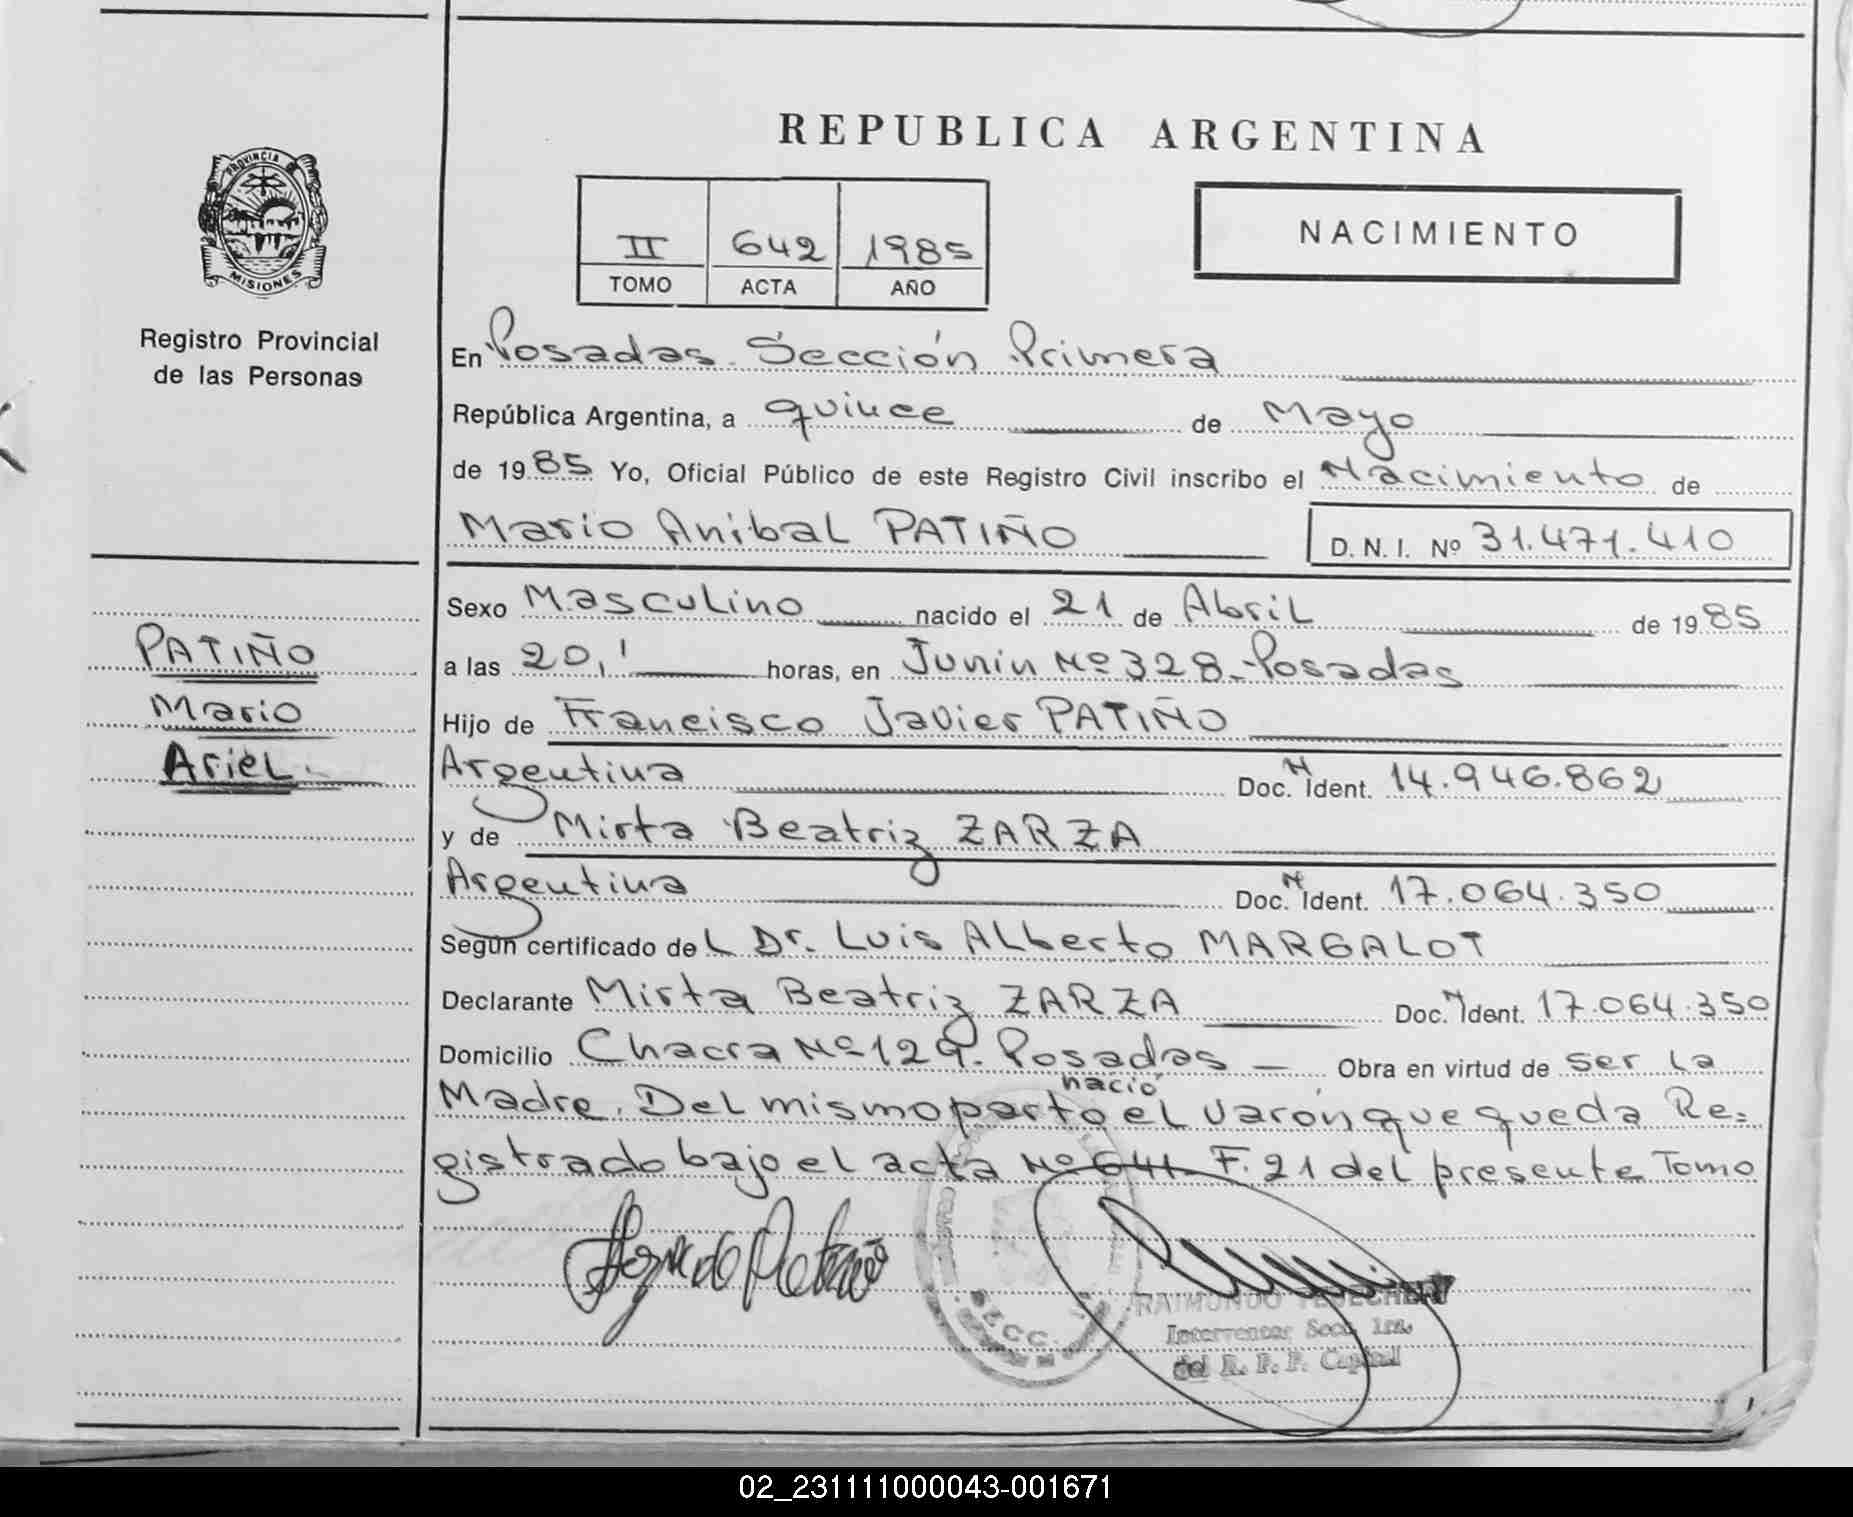 REPUBLICA ARGENTINA
PROVINCIA
MISIONES
Registro Provincial
de las Personas
II 642 1985
TOMO ACTA AÑO
NACIMIENTO
En Posadas. Sección Primera
República Argentina, a quince de Mayo
de 1985 Yo, Oficial Público de este Registro Civil inscribo el Nacimiento de
Mario Anibal PATIÑO D. N. I. Nº 31.471.410
PATIÑO
Mario
Ariel
Sexo Masculino nacido el 21 de Abril de 1985
a las 20,' horas, en Junin Nº 328 - Posadas
Hijo de Francisco Javier PATIÑO
Argentina Doc. N Ident. 14.946.862
y de Mirta Beatriz ZARZA
Argentina Doc. N Ident. 17.064.350
Según certificado del Dr. Luis Alberto MARGALOT
Declarante Mirta Beatriz ZARZA Doc. N Ident. 17.064.350
Domicilio Chacra Nº 129. Posadas — Obra en virtud de ser la
nació
Madre. Del mismo parto el varón que queda Re=
gistrado bajo el acta Nº 641 F. 21 del presente Tomo
SECC.
RAIMUNDO
Interventor Secc. 1ra.
del R. P. P. Capital
02_231111000043-001671